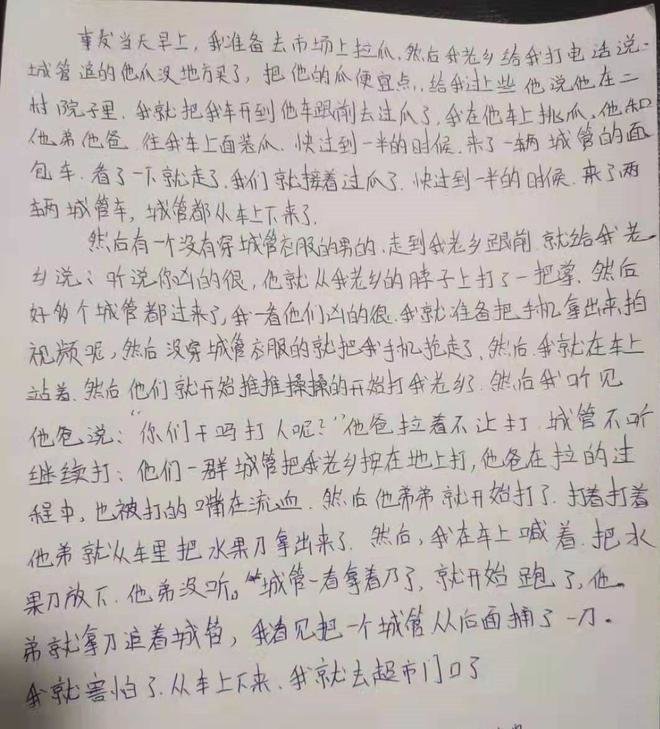 事发当天早上，我准备去市场上拉瓜．然后我老乡给我打电话说．
城管追的他瓜没地方卖了，把他的瓜便宜点．给我过上些 他说他在二
村院子里．我就把我车开到他车跟前去过瓜了．我在他车上挑瓜．他和
他弟他爸．往我车上面装瓜．快过到一半的时候．来了一辆城管的面
包车．看了一下就走了．我们就接着过瓜了．快过到一半的时候．来了两
辆城管车，城管都从车上下来了．
然后有一个没有穿城管衣服的男的．走到我老乡跟前．就给我老
乡说；听说你凶的很，他就从我老乡的脖子上打了一把掌．然后
好多个城管都过来了，我一看他们凶的很．我就准备把手机拿出来，拍
视频呢，然后没穿城管衣服的就把我手机抢走了．然后．我就在车上
站着．然后他们就开始推推搡搡的开始打我老乡．然后我听见
他爸说："你们干吗打人呢？"他爸拉着不让打．城管不听
继续打；他们一群城管把我老乡按在地上打，他爸在拉的过
程中，也被打的嘴在流血．然后他弟弟就开始打了．打着打着
他弟就从车里把水果刀拿出来了．然后，我在车上喊着．把水
果刀放下．他弟没听。城管一看拿着刀了，就开始跑了，他
弟就拿刀追着城管，我看见把一个城管从后面捅了一刀。
我就害怕了．从车上下来．我就去超市门口了